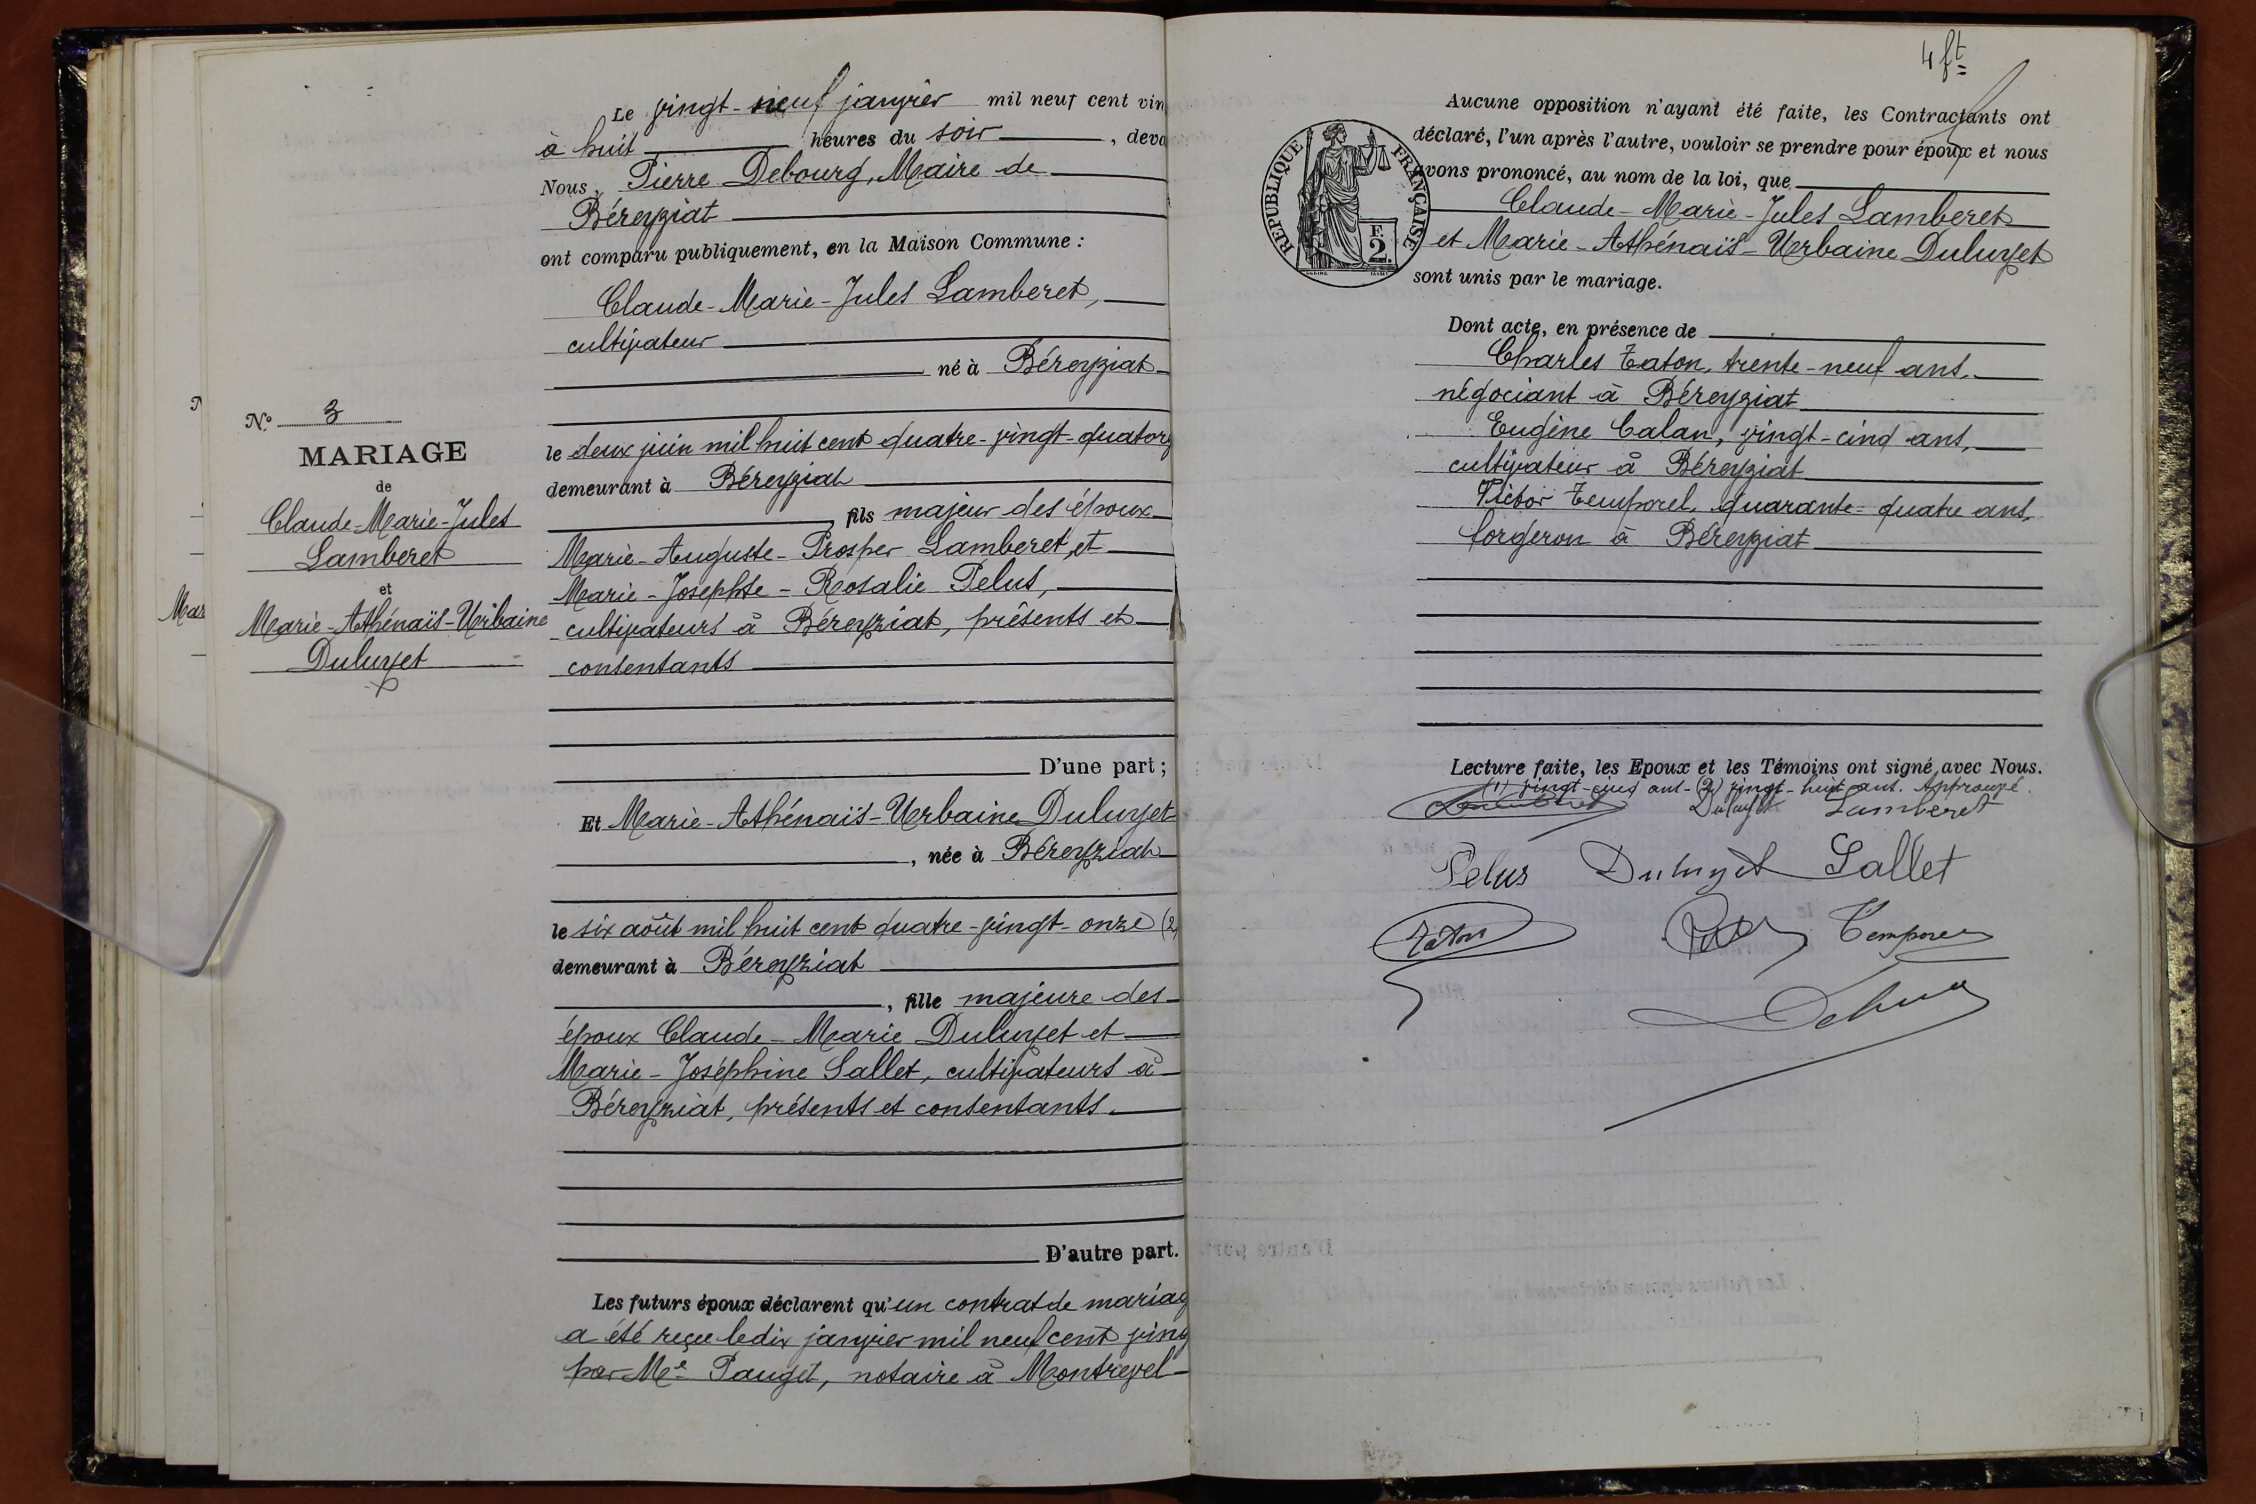 Le vingt-neuf janvier mil neuf cent vin
à huit heures du soir, deva
Nous, Pierre Debourg, Maire de
Béreyziat
ont comparu publiquement, en la Maison Commune :
Claude-Marie-Jules Lamberet,
cultivateur
né à Béreyziat
le deux juin mil huit cent quatre-vingt-quatorz
demeurant à Béreyziat
, fils majeur des époux
Marie-Auguste-Prosper Lamberet, et
Marie-Josephte-Rosalie Pelus,
cultivateurs à Béreyziat, présents et
consentants
D'une part ;
Et Marie-Athénaïs-Urbaine Duluyet
, née à Béreyziat
le six août mil huit cent quatre-vingt-onze (2)
demeurant à Béreyziat
, fille majeure des
époux Claude-Marie Duluyet et
Marie-Joséphine Sallet, cultivateurs à
Béreyziat, présents et consentants.
D'autre part.
Les futurs époux déclarent qu'un contrat de mariag
a été reçu le dix janvier mil neuf cent ving
par Me Pauget, notaire à Montrevel
N° 3
MARIAGE
de
Claude-Marie-Jules
Lamberet
et
Marie-Athénaïs-Urbaine
Duluyet
Mar
4 ft
Aucune opposition n'ayant été faite, les Contractants ont
déclaré, l'un après l'autre, vouloir se prendre pour époux et nous
avons prononcé, au nom de la loi, que
Claude-Marie-Jules Lamberet
et Marie-Athénaïs-Urbaine Duluyet
sont unis par le mariage.
REPUBLIQUE FRANÇAISE
F.
2.
Dont acte, en présence de
Charles Taton, trente-neuf ans,
négociant à Béreyziat
Eugène Calan, vingt-cinq ans,
cultivateur à Béreyziat
Victor Temporel, quarante-quatre ans,
forgeron à Béreyziat
Lecture faite, les Epoux et les Témoins ont signé avec Nous.
(1) vingt-cinq ans - (2) vingt-huit ans. Approuvé.
Duluyet Lamberet
Pelus Duluyet Sallet
Taton Temporel